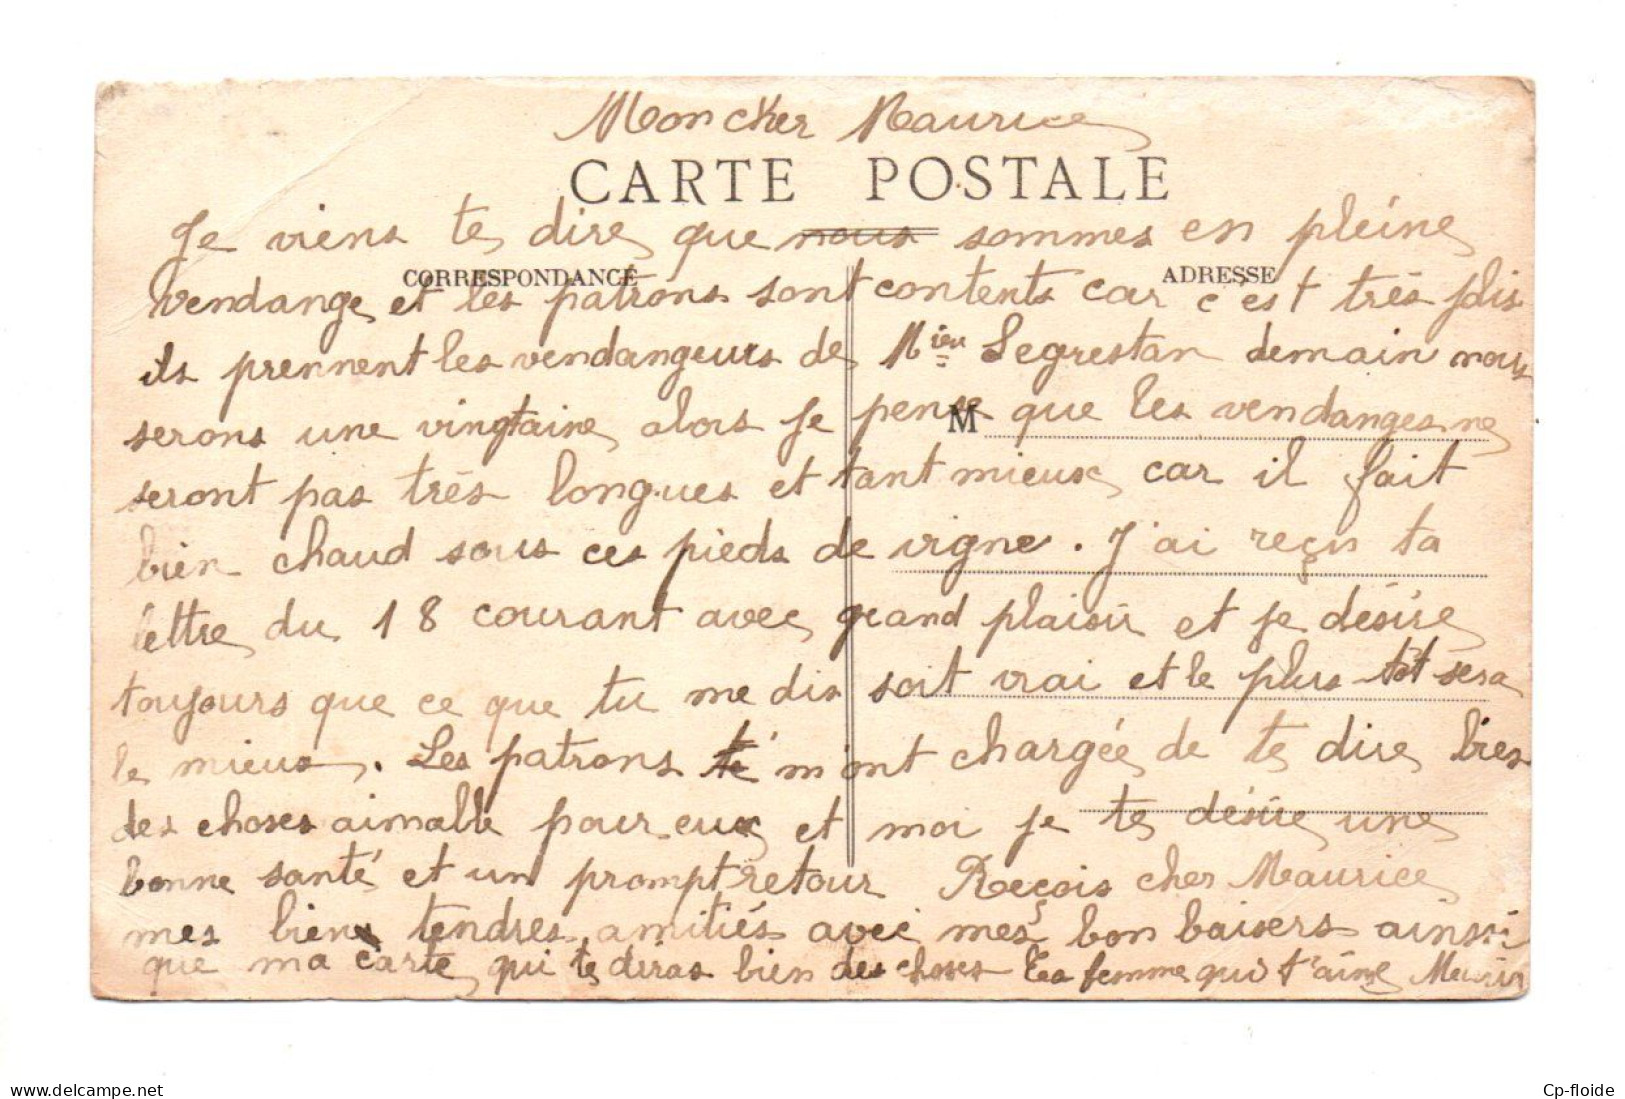 Mon cher Maurice
CARTE POSTALE
Je viens te dire que nous sommes en pleine
CORRESPONDANCE
ADRESSE
vendange et les patrons sont contents car c'est très joli
ils prennent les vendangeurs de Mieu Segrestan demain nous
M
serons une vingtaine alors je pense que les vendanges ne
seront pas très longues et tant mieux car il fait
bien chaud sous ces pieds de vigne. J'ai reçu ta
lettre du 18 courant avec grand plaisir et je désire
toujours que ce que tu me dis soit vrai et le plus tôt sera
le mieux. Les patrons m'ont chargée de te dire bien
des choses aimable pour eux et moi je te désire une
bonne santé et un prompt retour Reçois cher Maurice
mes bien tendres amitiés avec mes bon baisers ainsi
que ma carte qui te diras bien des choses Ta femme qui t'aime
delcampe.net
Cp-floide